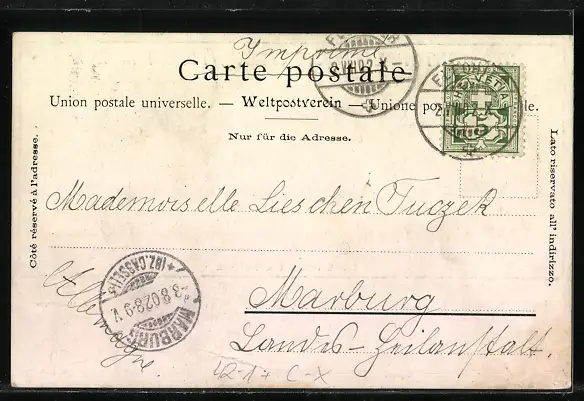 Imprimé
Carte postale
Union postale universelle. — Weltpostverein — Unione
Nur für die Adresse.
Côté réservé à l'adresse.
Lato riservato all' indirizzo.
HELVETIA
5
Mademoiselle Lieschen Tuczek
Marburg
Landes-Heilanstalt.
Allemagne.
MARBURG
* (BZ. CASSEL) *
3.8.02.8-9 V.
42-17 C-X